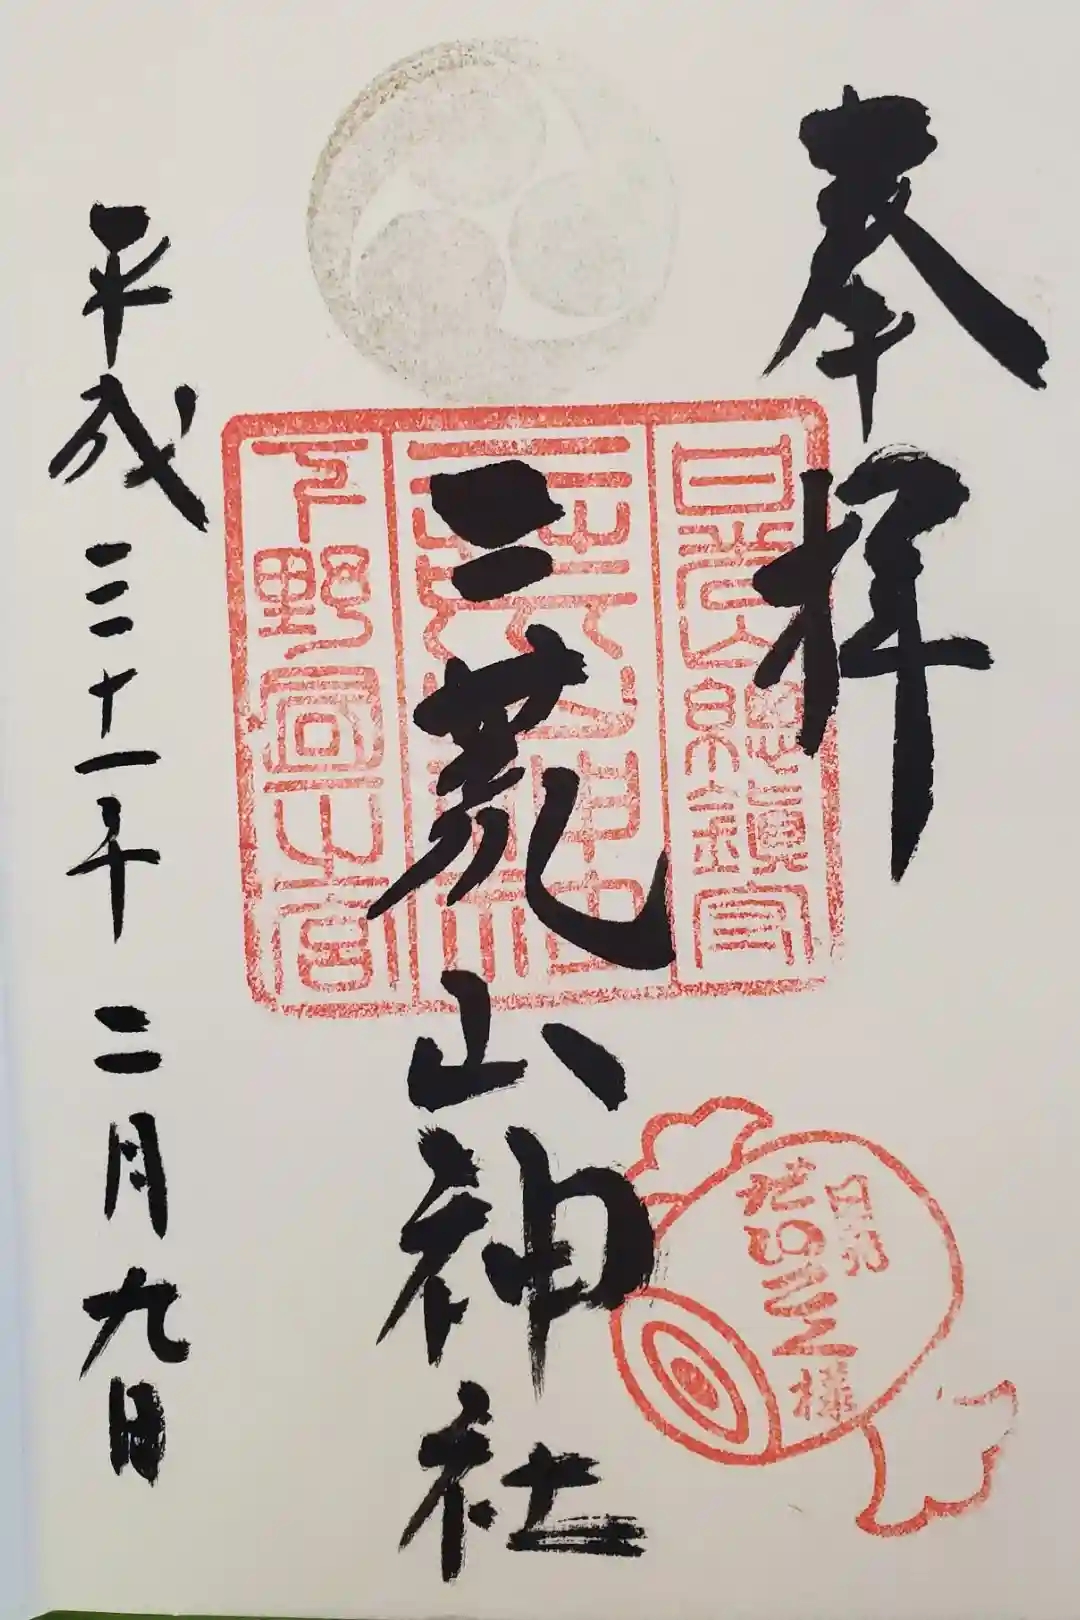 奉拝
日光山總鎮守
二荒山神社
下野國一之宮
二荒山神社
日光
様
平成三十一年二月九日